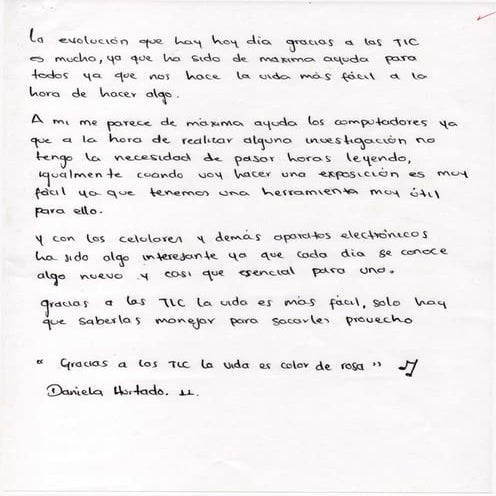 La evolución que hay hoy dia gracias a las TIC
es mucha, ya que ha sido de maxima ayuda para
todos ya que nos hace la vida más fácil a la
hora de hacer algo.
A mi me parece de maxima ayuda los computadores ya
que a la hora de realizar alguna investigación no
tengo la necesidad de pasar horas leyendo,
igualmente cuando voy hacer una exposición es muy
fácil ya que tenemos una herramienta muy útil
para ello.
Y con los celulares y demás aparatos electrónicos
ha sido algo interesante ya que cada dia se conoce
algo nuevo y casi que esencial para uno.
gracias a las TIC la vida es más fácil, solo hay
que saberlas manejar para sacarles provecho
" Gracias a las TIC la vida es color de rosa " ♫
Daniela Hurtado. 11.